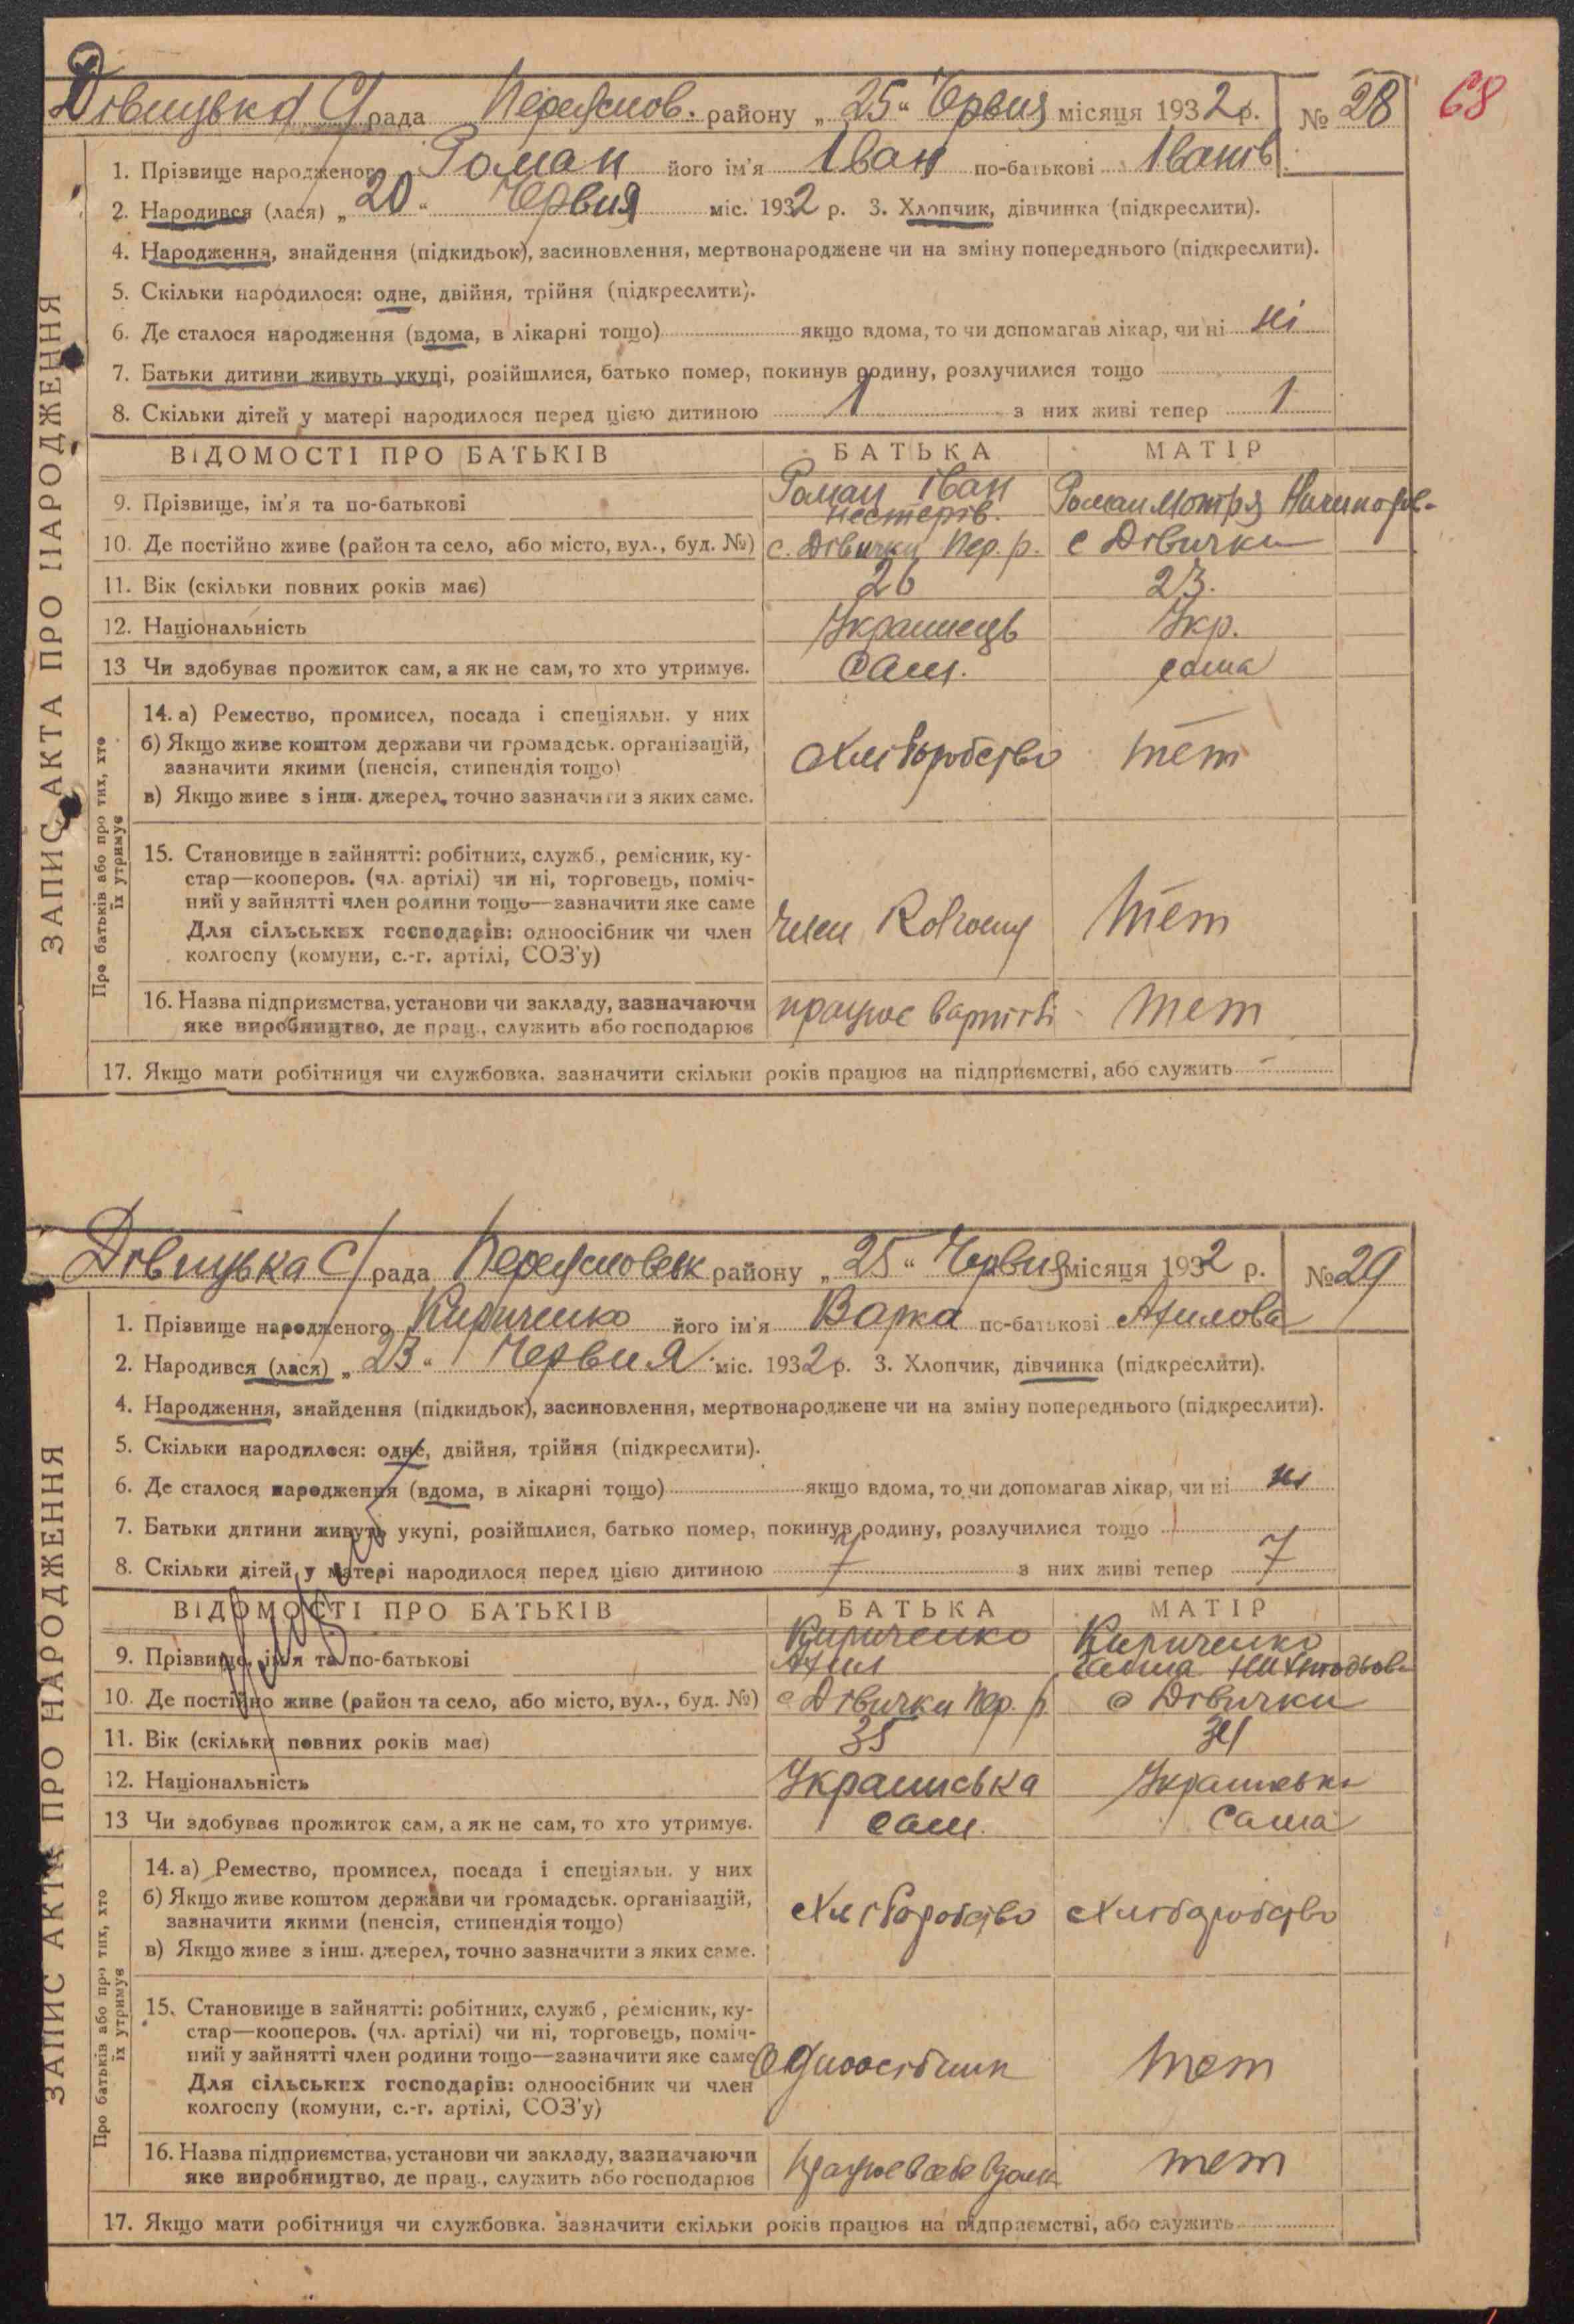 68
ЗАПИС АКТА ПРО НАРОДЖЕННЯ
Дівицька С/рада Переяслов. району „25“ Червня місяця 1932 р. № 28
1. Прізвище народженого Роман його ім'я Іван по-батькові Іванів
2. Народився (лася) „20“ Червня міс. 1932 р. 3. Хлопчик, дівчинка (підкреслити).
4. Народження, знайдення (підкидьок), засиновлення, мертвонароджене чи на зміну попереднього (підкреслити).
5. Скільки народилося: одне, двійня, трійня (підкреслити).
6. Де сталося народження (вдома, в лікарні тощо) якщо вдома, то чи допомагав лікар, чи ні ні
7. Батьки дитини живуть укупі, розійшлися, батько помер, покинув родину, розлучилися тощо
8. Скільки дітей у матері народилося перед цією дитиною 1 з них живі тепер 1
ВІДОМОСТІ ПРО БАТЬКІВ БАТЬКА МАТІР
9. Прізвище, ім'я та по-батькові Роман Іван Нестерів. Роман Мотря Ничипорів-
10. Де постійно живе (район та село, або місто, вул., буд. №) с. Дівички Пер. р. с Дівички
11. Вік (скільки повних років має) 26 23.
12. Національність Украинець Укр.
13 Чи здобуває прожиток сам, а як не сам, то хто утримує. сам. сама
Про батьків або про тих, хто їх утримує
14. а) Ремество, промисел, посада і спеціяльн. у них
б) Якщо живе коштом держави чи громадськ. організацій,
зазначити якими (пенсія, стипендія тощо)
в) Якщо живе з інш. джерел, точно зазначити з яких саме.
Хліборобство теж
15. Становище в зайнятті: робітник, служб., ремісник, ку-
стар—кооперов. (чл. артілі) чи ні, торговець, поміч-
ний у зайнятті член родини тощо—зазначити яке саме
Для сільських господарів: одноосібник чи член
колгоспу (комуни, с.-г. артілі, СОЗ'у)
член Колгоспу теж
16. Назва підприємства, установи чи закладу, зазначаючи
яке виробництво, де прац., служить або господарює
працює в артілі теж
17. Якщо мати робітниця чи службовка. зазначити скільки років працює на підприємстві, або служить -
ЗАПИС АКТА ПРО НАРОДЖЕННЯ
Дівицька С/рада Переясловськ району „25“ Червня місяця 1932 р. № 29
1. Прізвище народженого Кириченко його ім'я Варка по-батькові Ахилова
2. Народився (лася) „23“ Червня міс. 1932 р. 3. Хлопчик, дівчинка (підкреслити).
4. Народження, знайдення (підкидьок), засиновлення, мертвонароджене чи на зміну попереднього (підкреслити).
5. Скільки народилося: одне, двійня, трійня (підкреслити).
6. Де сталося народження (вдома, в лікарні тощо) якщо вдома, то чи допомагав лікар, чи ні ні
7. Батьки дитини живуть укупі, розійшлися, батько помер, покинув родину, розлучилися тощо
8. Скільки дітей у матері народилося перед цією дитиною 7 з них живі тепер 7
ВІДОМОСТІ ПРО БАТЬКІВ БАТЬКА МАТІР
9. Прізвище, ім'я та по-батькові Кириченко Ахил Кириченко
10. Де постійно живе (район та село, або місто, вул., буд. №) с Дівички Пер. р. с Дівички
11. Вік (скільки повних років має) 35 34
12. Національність Украинська Украинська
13 Чи здобуває прожиток сам, а як не сам, то хто утримує. сам. сама
Про батьків або про тих, хто їх утримує
14. а) Ремество, промисел, посада і спеціяльн. у них
б) Якщо живе коштом держави чи громадськ. організацій,
зазначити якими (пенсія, стипендія тощо)
в) Якщо живе з інш. джерел, точно зазначити з яких саме.
Хліборобство Хліборобство
15. Становище в зайнятті: робітник, служб., ремісник, ку-
стар—кооперов. (чл. артілі) чи ні, торговець, поміч-
ний у зайнятті член родини тощо—зазначити яке саме
Для сільських господарів: одноосібник чи член
колгоспу (комуни, с.-г. артілі, СОЗ'у)
Одноосібник теж
16. Назва підприємства, установи чи закладу, зазначаючи
яке виробництво, де прац., служить або господарює
Працює в себе вдома теж
17. Якщо мати робітниця чи службовка. зазначити скільки років працює на підприємстві, або служить